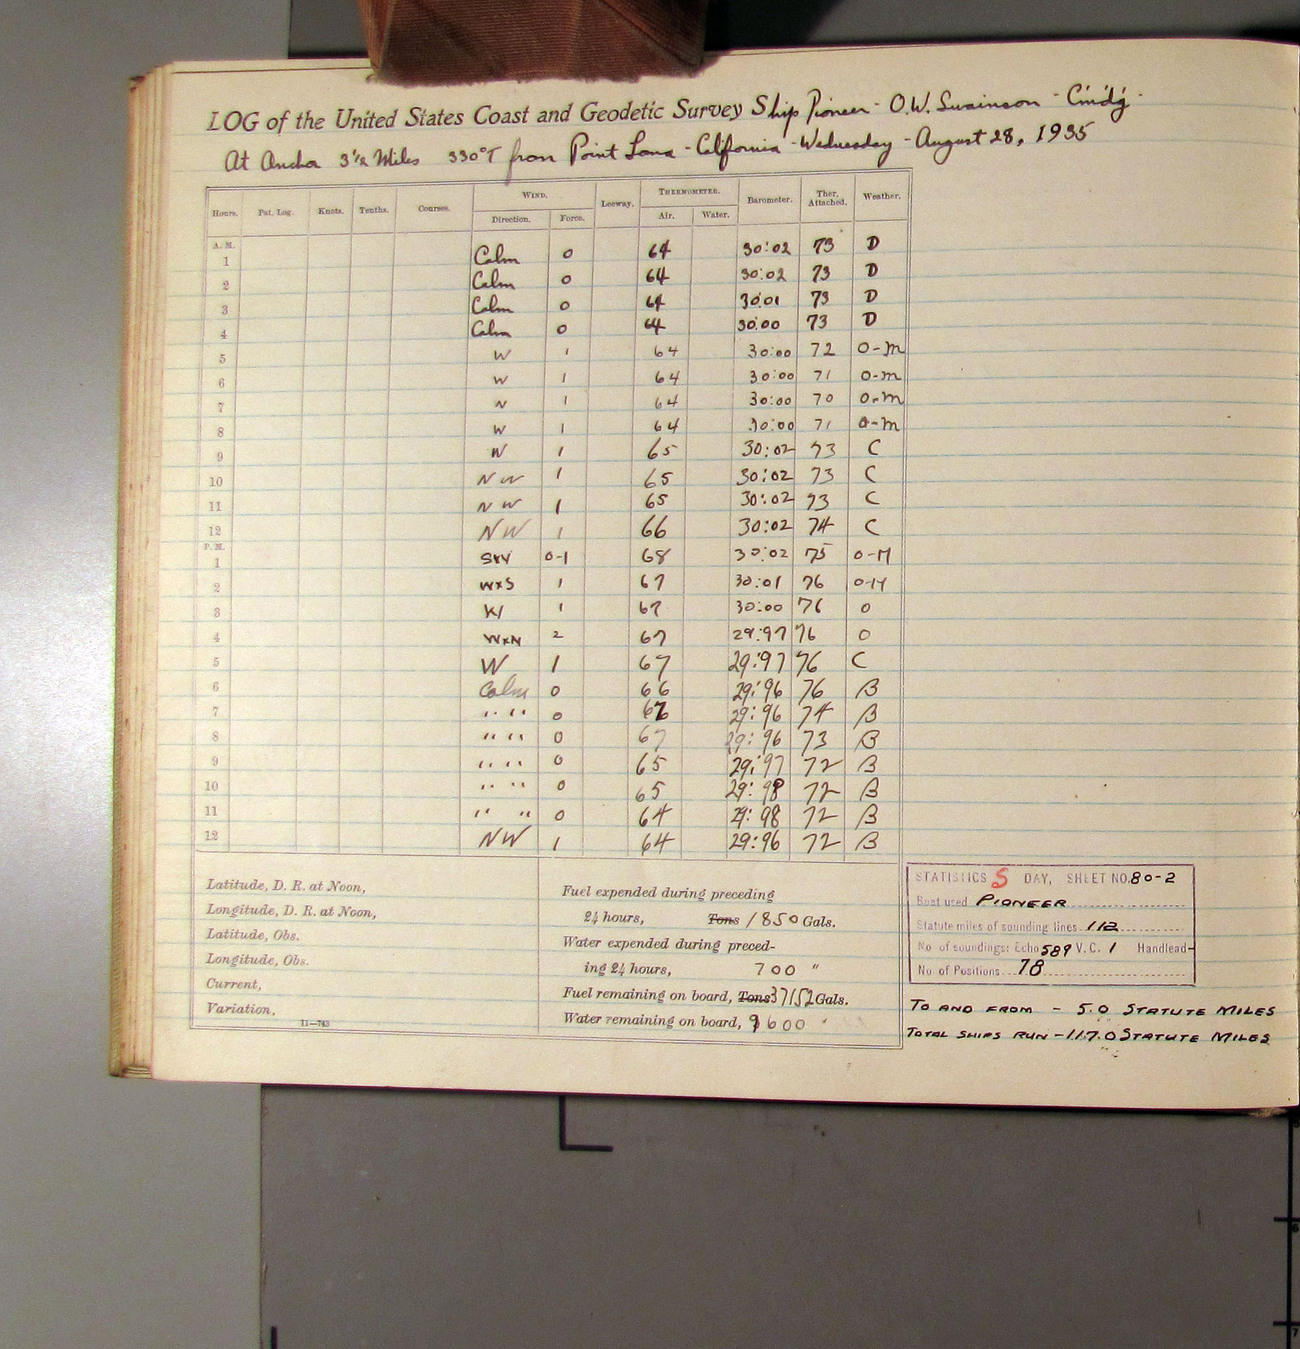 LOG of the United States Coast and Geodetic Survey Ship Pioneer - O.W. Swainson - Cm'd'g.
At Anchor 3½ Miles 330°T from Point Loma - California - Wednesday - August 28, 1935
Hours. Pat. Log. Knots. Tenths. Courses. WIND. Direction. Force. Leeway. THERMOMETER. Air. Water. Barometer. Ther. Attached. Weather.
A. M.
1 Calm 0 64 30:02 73 D
2 Calm 0 64 30:02 73 D
3 Calm 0 64 30:01 73 D
4 Calm 0 64 30:00 73 D
5 W 1 64 30:00 72 O-M
6 W 1 64 30:00 71 O-M
7 W 1 64 30:00 70 O-M
8 W 1 64 30:00 71 O-M
9 W 1 65 30:02 73 C
10 NW 1 65 30:02 73 C
11 NW 1 65 30:02 73 C
12 NW 1 66 30:02 74 C
P. M.
1 SW 0-1 68 30:02 75 O-M
2 WxS 1 67 30:01 76 O-M
3 W 1 67 30:00 76 O
4 WxN 2 67 29:97 76 O
5 W 1 67 29:97 76 C
6 Calm 0 66 29:96 76 B
7 " " 0 29:96 74 B
8 " " 0 67 29:96 73 B
9 " " 0 65 29:97 72 B
10 " " 0 65 29:98 72 B
11 " " 0 64 29:98 72 B
12 NW 1 64 29:96 72 B
Latitude, D. R. at Noon,
Longitude, D. R. at Noon,
Latitude, Obs.
Longitude, Obs.
Current,
Variation,
11—763
Fuel expended during preceding
24 hours, Tons 1850 Gals.
Water expended during preced-
ing 24 hours, 700 "
Fuel remaining on board, Tons 37152 Gals.
Water remaining on board, 9600 "
STATISTICS S DAY, SHEET NO. 80-2
Boat used PIONEER
Statute miles of sounding lines 112
No. of soundings: Echo 589 V.C. 1 Handlead -
No. of Positions 78
TO AND FROM - 5.0 STATUTE MILES
TOTAL SHIPS RUN - 117.0 STATUTE MILES
6
7